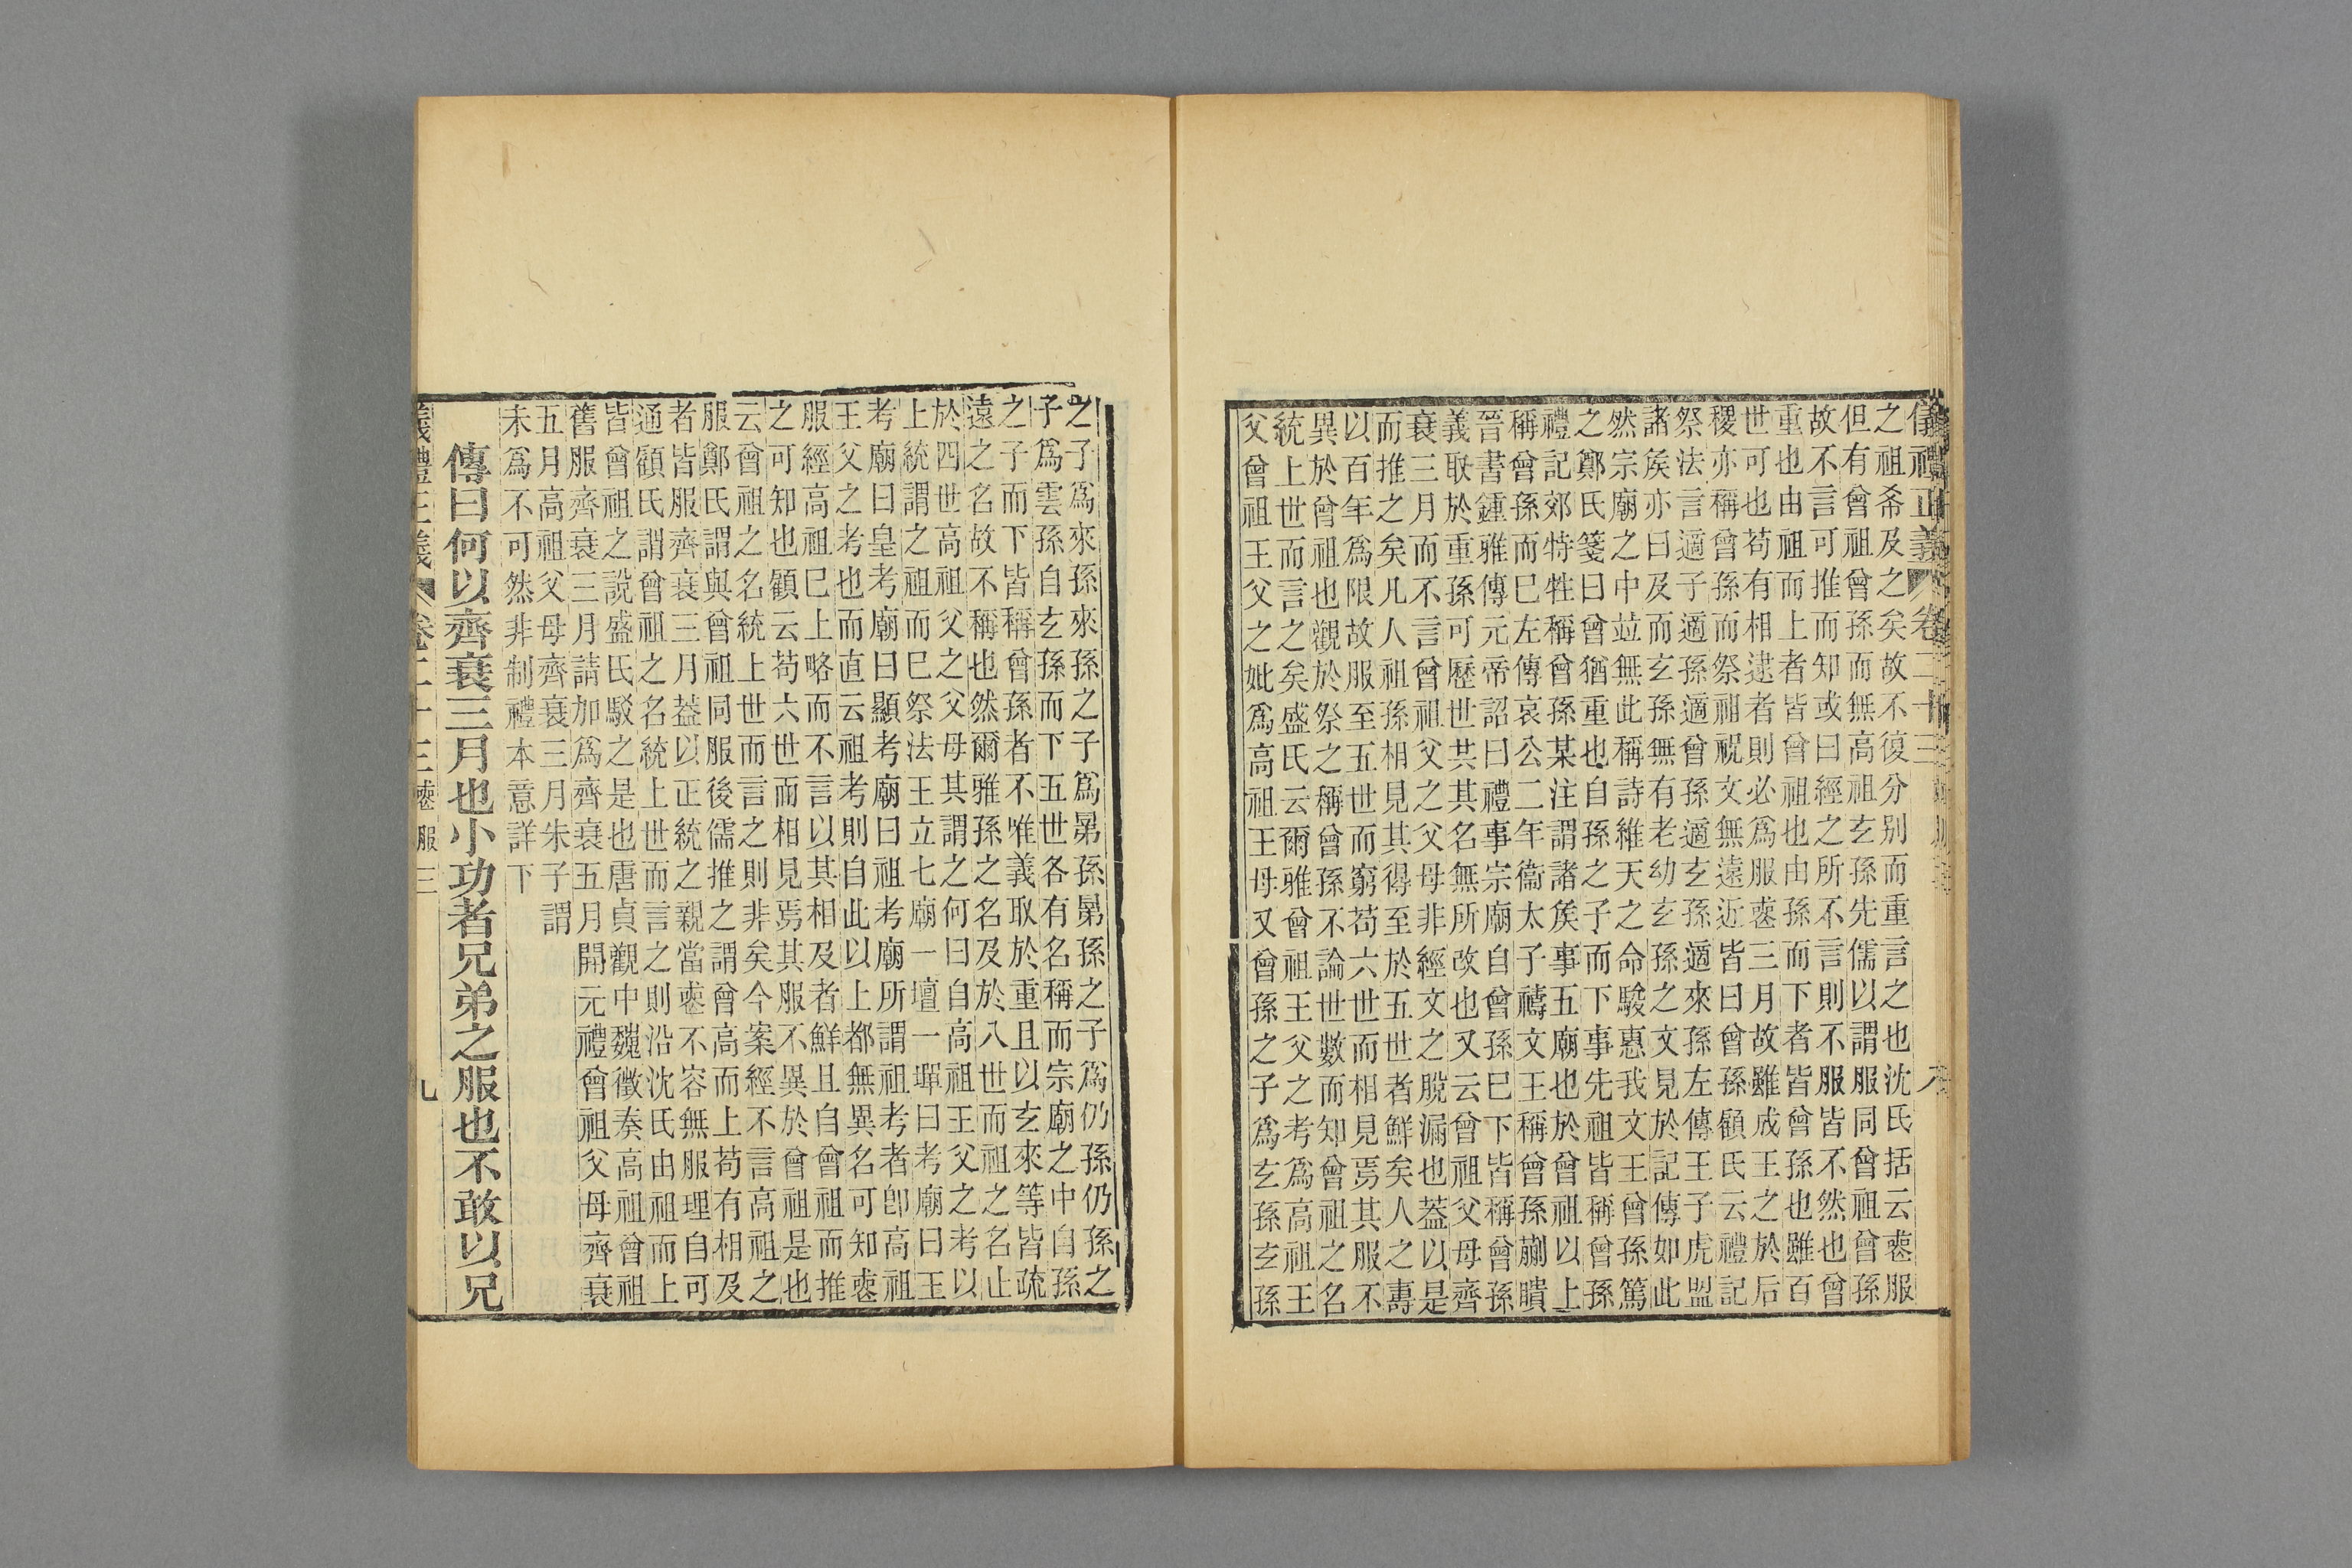 儀禮正義 卷二十三
之祖希及之矣故不復分别而重言之也沈氏括云喪服
但有曾祖曾孫而無高祖玄孫先儒以謂服同曾祖曾孫
故不言可推而知或曰經之所不言則不服皆不然也曾
重也由祖而上者皆曾祖也由孫而下者皆曾孫也雖百
世可也苟有相逮者則必爲服喪三月故雖成王之於后
稷亦稱曾孫而祭祖祝文無遠近皆曰曾孫顧氏云禮記
祭法言適子適孫適曾孫適玄孫適來孫左傳王子虎盟
諸矦亦曰及而玄孫無有老幼玄孫之文見於記傳如此
然宗廟之中竝無此稱詩維天之命駿惠我文王曾孫篤
之鄭氏箋曰曾猶重也自孫之子而下事先祖皆稱曾孫
禮記郊特牲稱曾孫某注謂諸矦事五廟也於曾祖以上
稱曾孫而已左傳哀公二年衞太子禱文王稱曾孫蒯聵
晉書鍾雅傳元帝詔曰禮事宗廟自曾孫已下皆稱曾孫
義取於重孫可歷世共其名無所改也又云曾祖父母齊
衰三月而不言曾祖父之父母非經文之脫漏也蓋以是
而推之矣凡人祖孫相見其得至於五世者鮮矣人之壽
以百年爲限故服至五世而窮苟六世而相見焉其服不
異於曾祖也觀於祭之稱曾孫不論世數而知曾祖之名
統上世而言之矣盛氏云爾雅曾祖王父之考爲高祖王
父曾祖王父之妣爲高祖王母又曾孫之子爲玄孫玄孫
之子爲來孫來孫之子爲晜孫晜孫之子爲仍孫仍孫之
子爲雲孫自玄孫而下五世各有名稱而宗廟之中自孫
之子而下皆稱曾孫者不唯義取於重且以玄來等皆疏
遠之名故不稱也然爾雅孫之名及於八世而祖之名止
於四世高祖父之父母其謂之何曰自高祖王父之考以
上統謂之祖而已祭法王立七廟一壇一墠曰考廟曰王
考廟曰皇考廟曰顯考廟曰祖考廟所謂祖考者卽高祖
王父之考也而直云祖考則自此以上都無異名可知喪
服經高祖已上略而不言以其相及者鮮且自曾祖而推
之可知也顧云苟六世而相見焉其服不異於曾祖是也
云曾祖之名統上世而言之則非矣今案經不言高祖之
服鄭氏謂與曾祖同服後儒推之謂曾高而上苟有相及
者皆服齊衰三月蓋以正統之親當喪不容無服理自可
通顧氏謂曾祖之名統上世而言之則沿沈氏由祖而上
皆曾祖之說盛氏駁之是也唐貞觀中魏徵奏高祖曾祖
舊服齊衰三月請加爲齊衰五月開元禮曾祖父母齊衰
五月高祖父母齊衰三月朱子謂
未爲不可然非制禮本意詳下
傳曰何以齊衰三月也小功者兄弟之服也不敢以兄
儀禮正義 卷二十三 喪服三 九